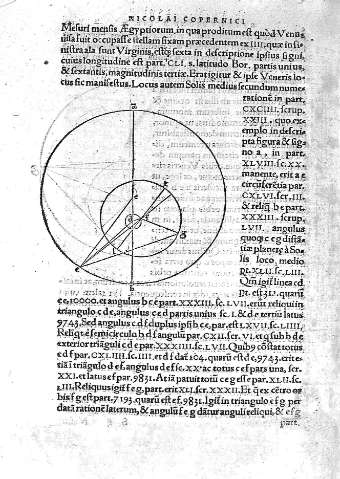 NICOLAI COPERNICI
Mesuri mensis Ægyptiorum, in qua proditum est quòd Venus
uisa fuit occupasse stellam fixam præcedentem ex IIII. quæ in si-
nistra ala sunt Virginis, estq; sexta in descriptione ipsius signi,
cuius longitudine est part. CLI. s. latitudo Bor. partis unius,
& sextantis, magnitudinis tertiæ. Erat igitur & ipse Veneris lo-
cus sic manifestus. Locus autem Solis medius secundum nume-
rationẽ in part.
CXCIIII. scrup.
XXIII. quo ex-
emplo in descri-
pta figura & sig-
no a, in part.
XLVIII. sc. XX.
manente, erit a e
circũferẽtia par.
CXLVI. scr. III.
& reliq̃ b e part.
XXXIII. scrup.
LVII. angulus
quoq; c e g distã-
tiæ planetæ à So-
lis loco medio
pt. XLII. sc. LIII.
Qm̃ igit̃ linea c d
pt. est quarũ
c e. 10000. et angulus b c e part. XXXIII. sc. LVII. erũt reliqui in
triangulo c d e, angulus c e d partis unius sc. I. & d e tertiũ latus
9743. Sed angulus c d f duplus ipsi b c e, par. est LXVII. sc. LIIII.
Reliq̃ è semicirculo b d f angulũ par. CXII. scr. VI. et q̃ sub b d e
exterior triãguli c d e part. XXXIIII. sc. LVII. Quib9 cõstat totus
e d f par. CXLIIII. sc. IIII. et d f daẽ 104. quarũ est d e. 9743. erit e-
tiã ĩ triãgulo d e f. angulus d e f sc. XX. ac totus c e f pars una, scr.
XXI. et latus e f par. 9831. At iã patuit totũ c e g esse par. XLII. sc.
LIII. Reliquus igit̃ f e g. part. erit XLI. scr. XXXII. Et q̃ ex cẽtro or-
bis f g est part. 7193. quarũ est e f. 9831. Igit̃ in triangulo e f g per
datã rationẽ laterum, & angulũ f e g dãtur anguli reliqui, & e f g
part.